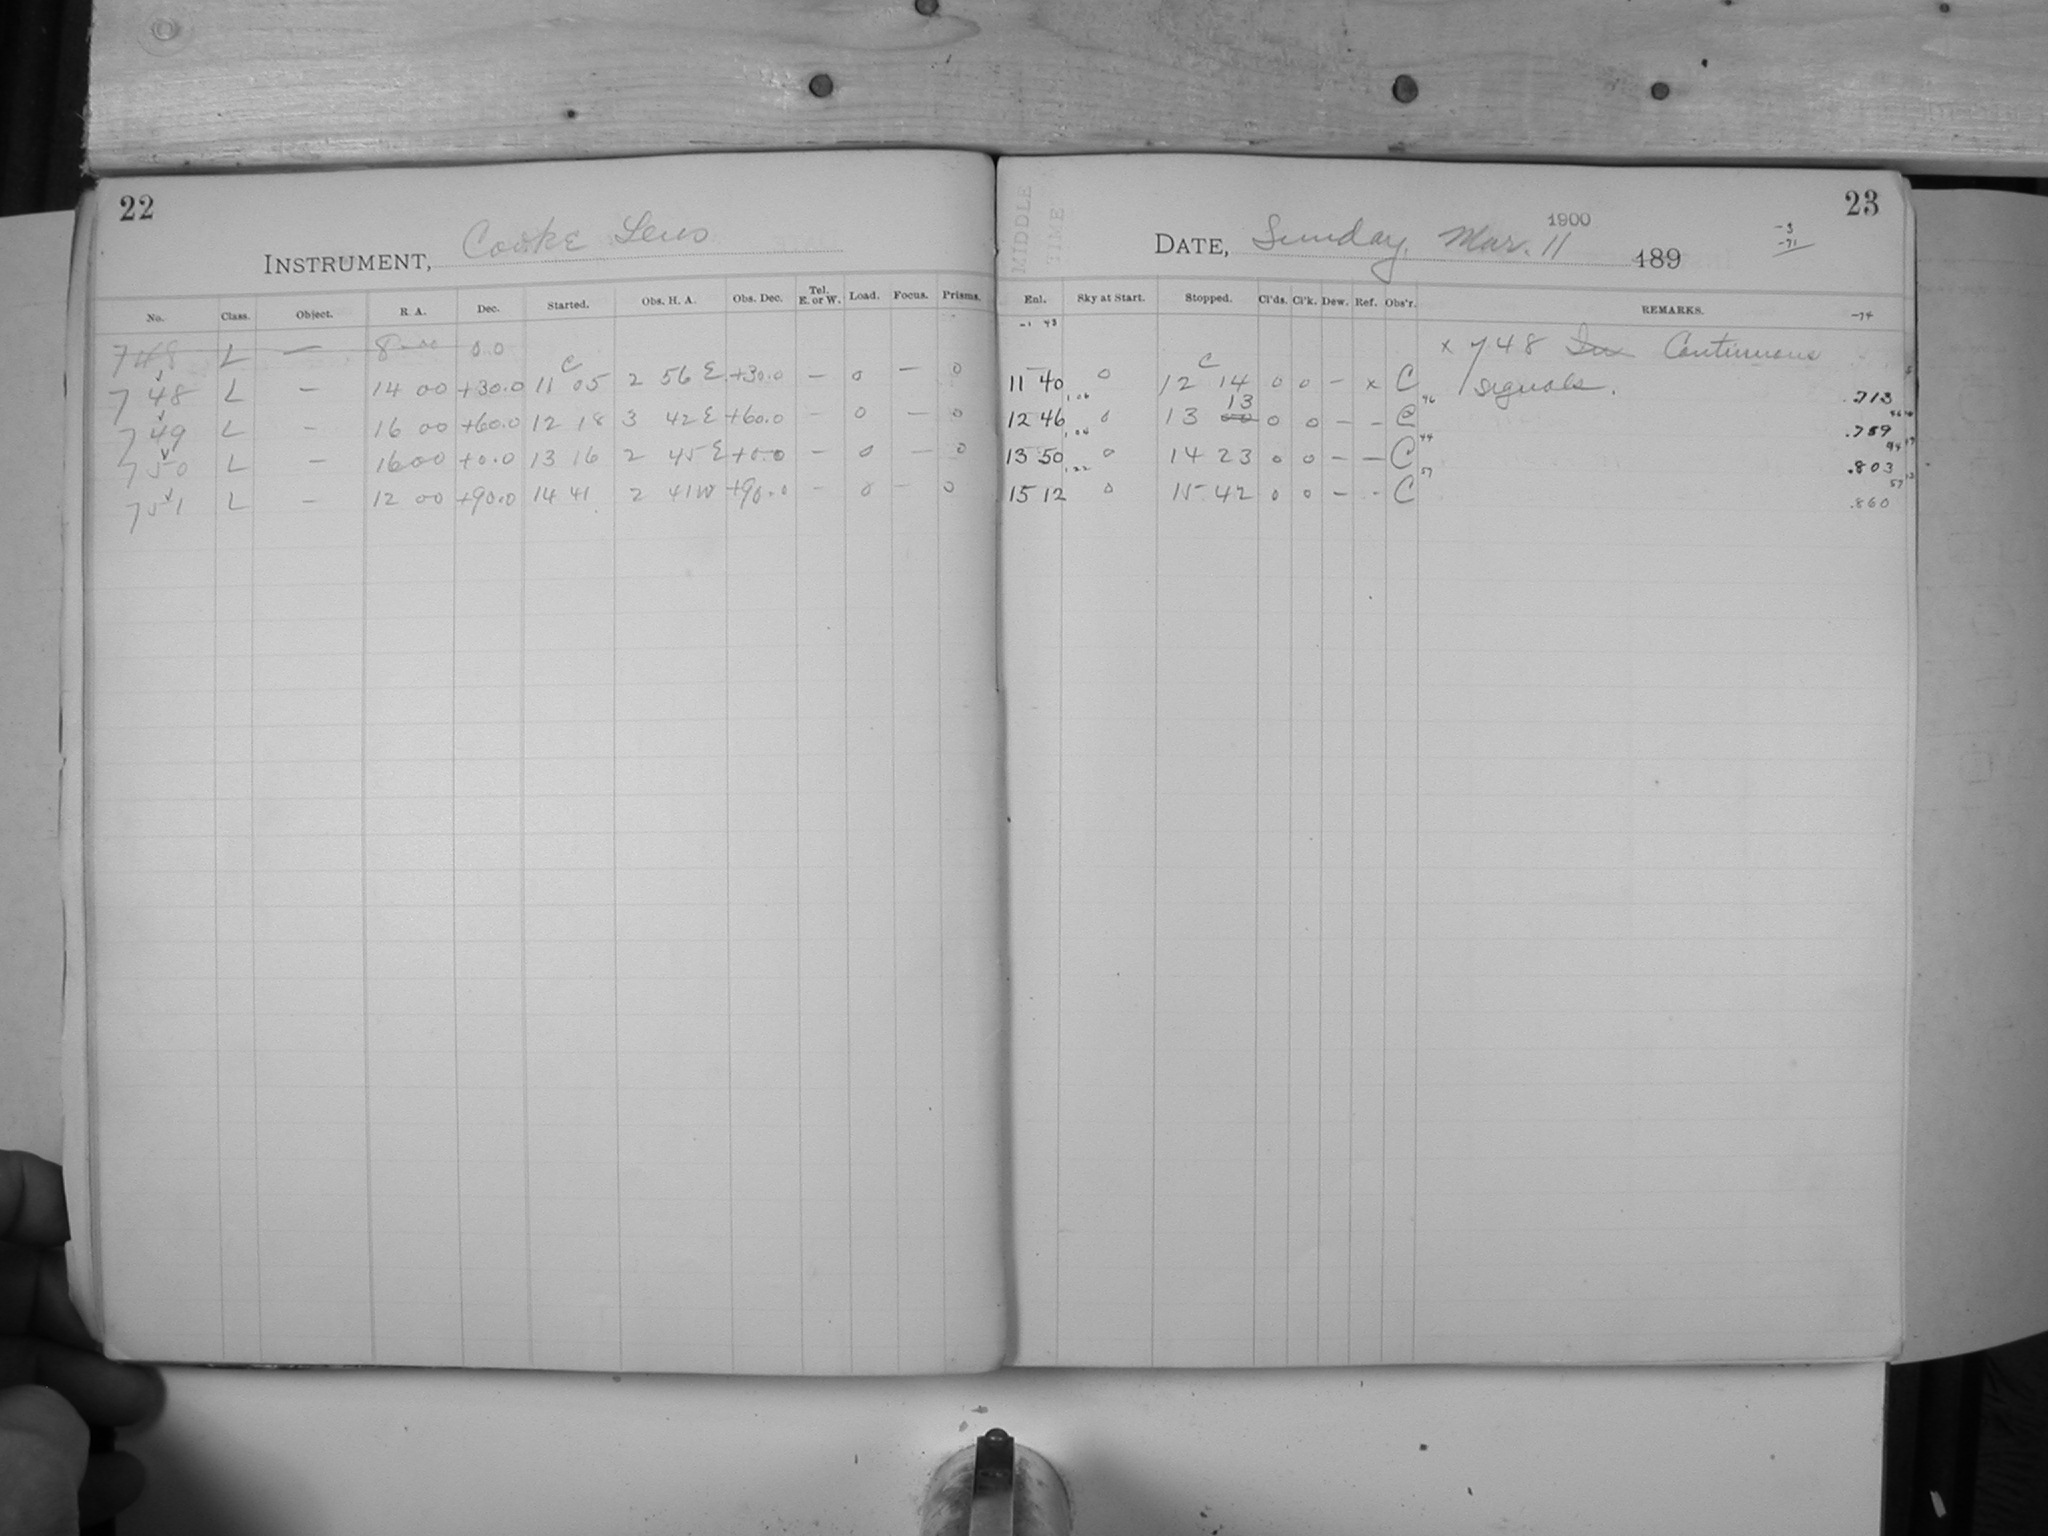 22
INSTRUMENT, Cooke Lens
No. Class. Object. R. A. Dec. Started. Obs. H. A. Obs. Dec. Tel. E. or W. Load. Focus. Prisms.
748 L — 8 00 0.0
748 L — 14 00 +30.0 11 C 05 2 56 E +30.0 — 0 — 0
749 L — 16 00 +60.0 12 18 3 42 E +60.0 — 0 — 0
750 L — 16 00 +0.0 13 16 2 45 E +0.0 — 0 — 0
751 L — 12 00 +90.0 14 41 2 41 W +90.0 — 0 — 0
23
MIDDLE TIME
1900
DATE, Sunday, Mar. 11 189
-3
-71
Enl. Sky at Start. Stopped. Cl'ds. Cl'k. Dew. Ref. Obs'r. REMARKS. -74
-1 43
x 748 Continuous
11 40 0 12 C 14 0 0 — x C signals. .713
1.06 46
12 46 0 13 13 00 0 0 — — C .759
1.04 44
13 50 0 14 23 0 0 — — C .803
1.22 57
15 12 0 15 42 0 0 — — C .860